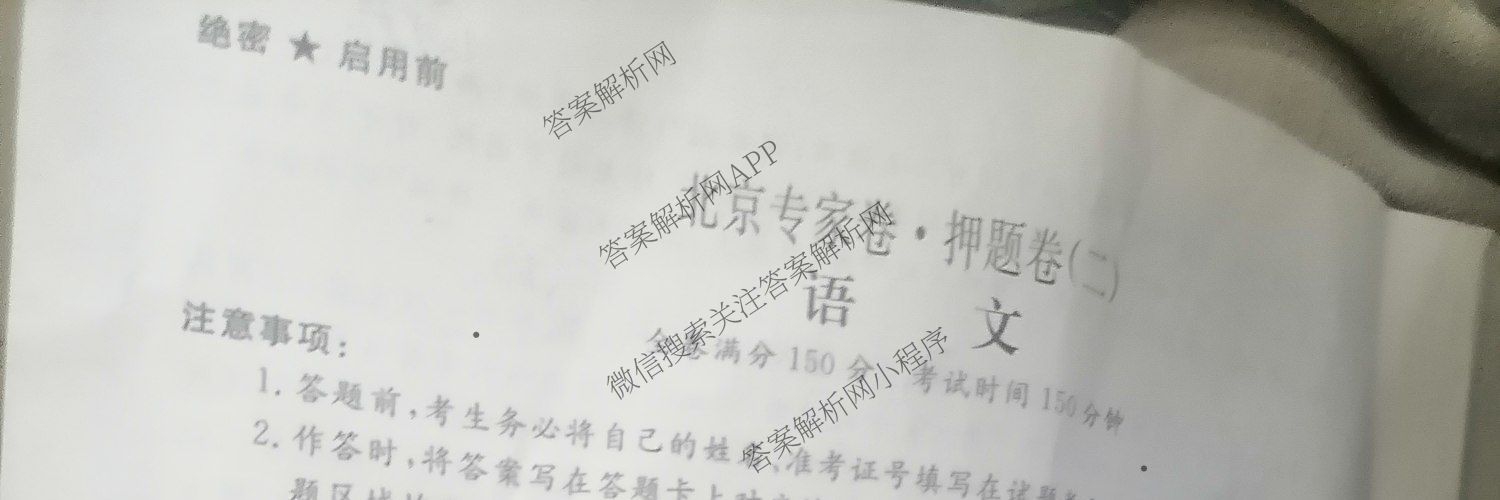 绝密 ★ 启用前
北京专家卷·押题卷(二)
语 文
全卷满分 150 分 考试时间 150 分钟
注意事项:
1. 答题前,考生务必将自己的姓名、准考证号填写在试题卷
2. 作答时,将答案写在答题卡上对应
题区域
答案解析网
答案解析网APP
微信搜索关注答案解析网
答案解析网小程序